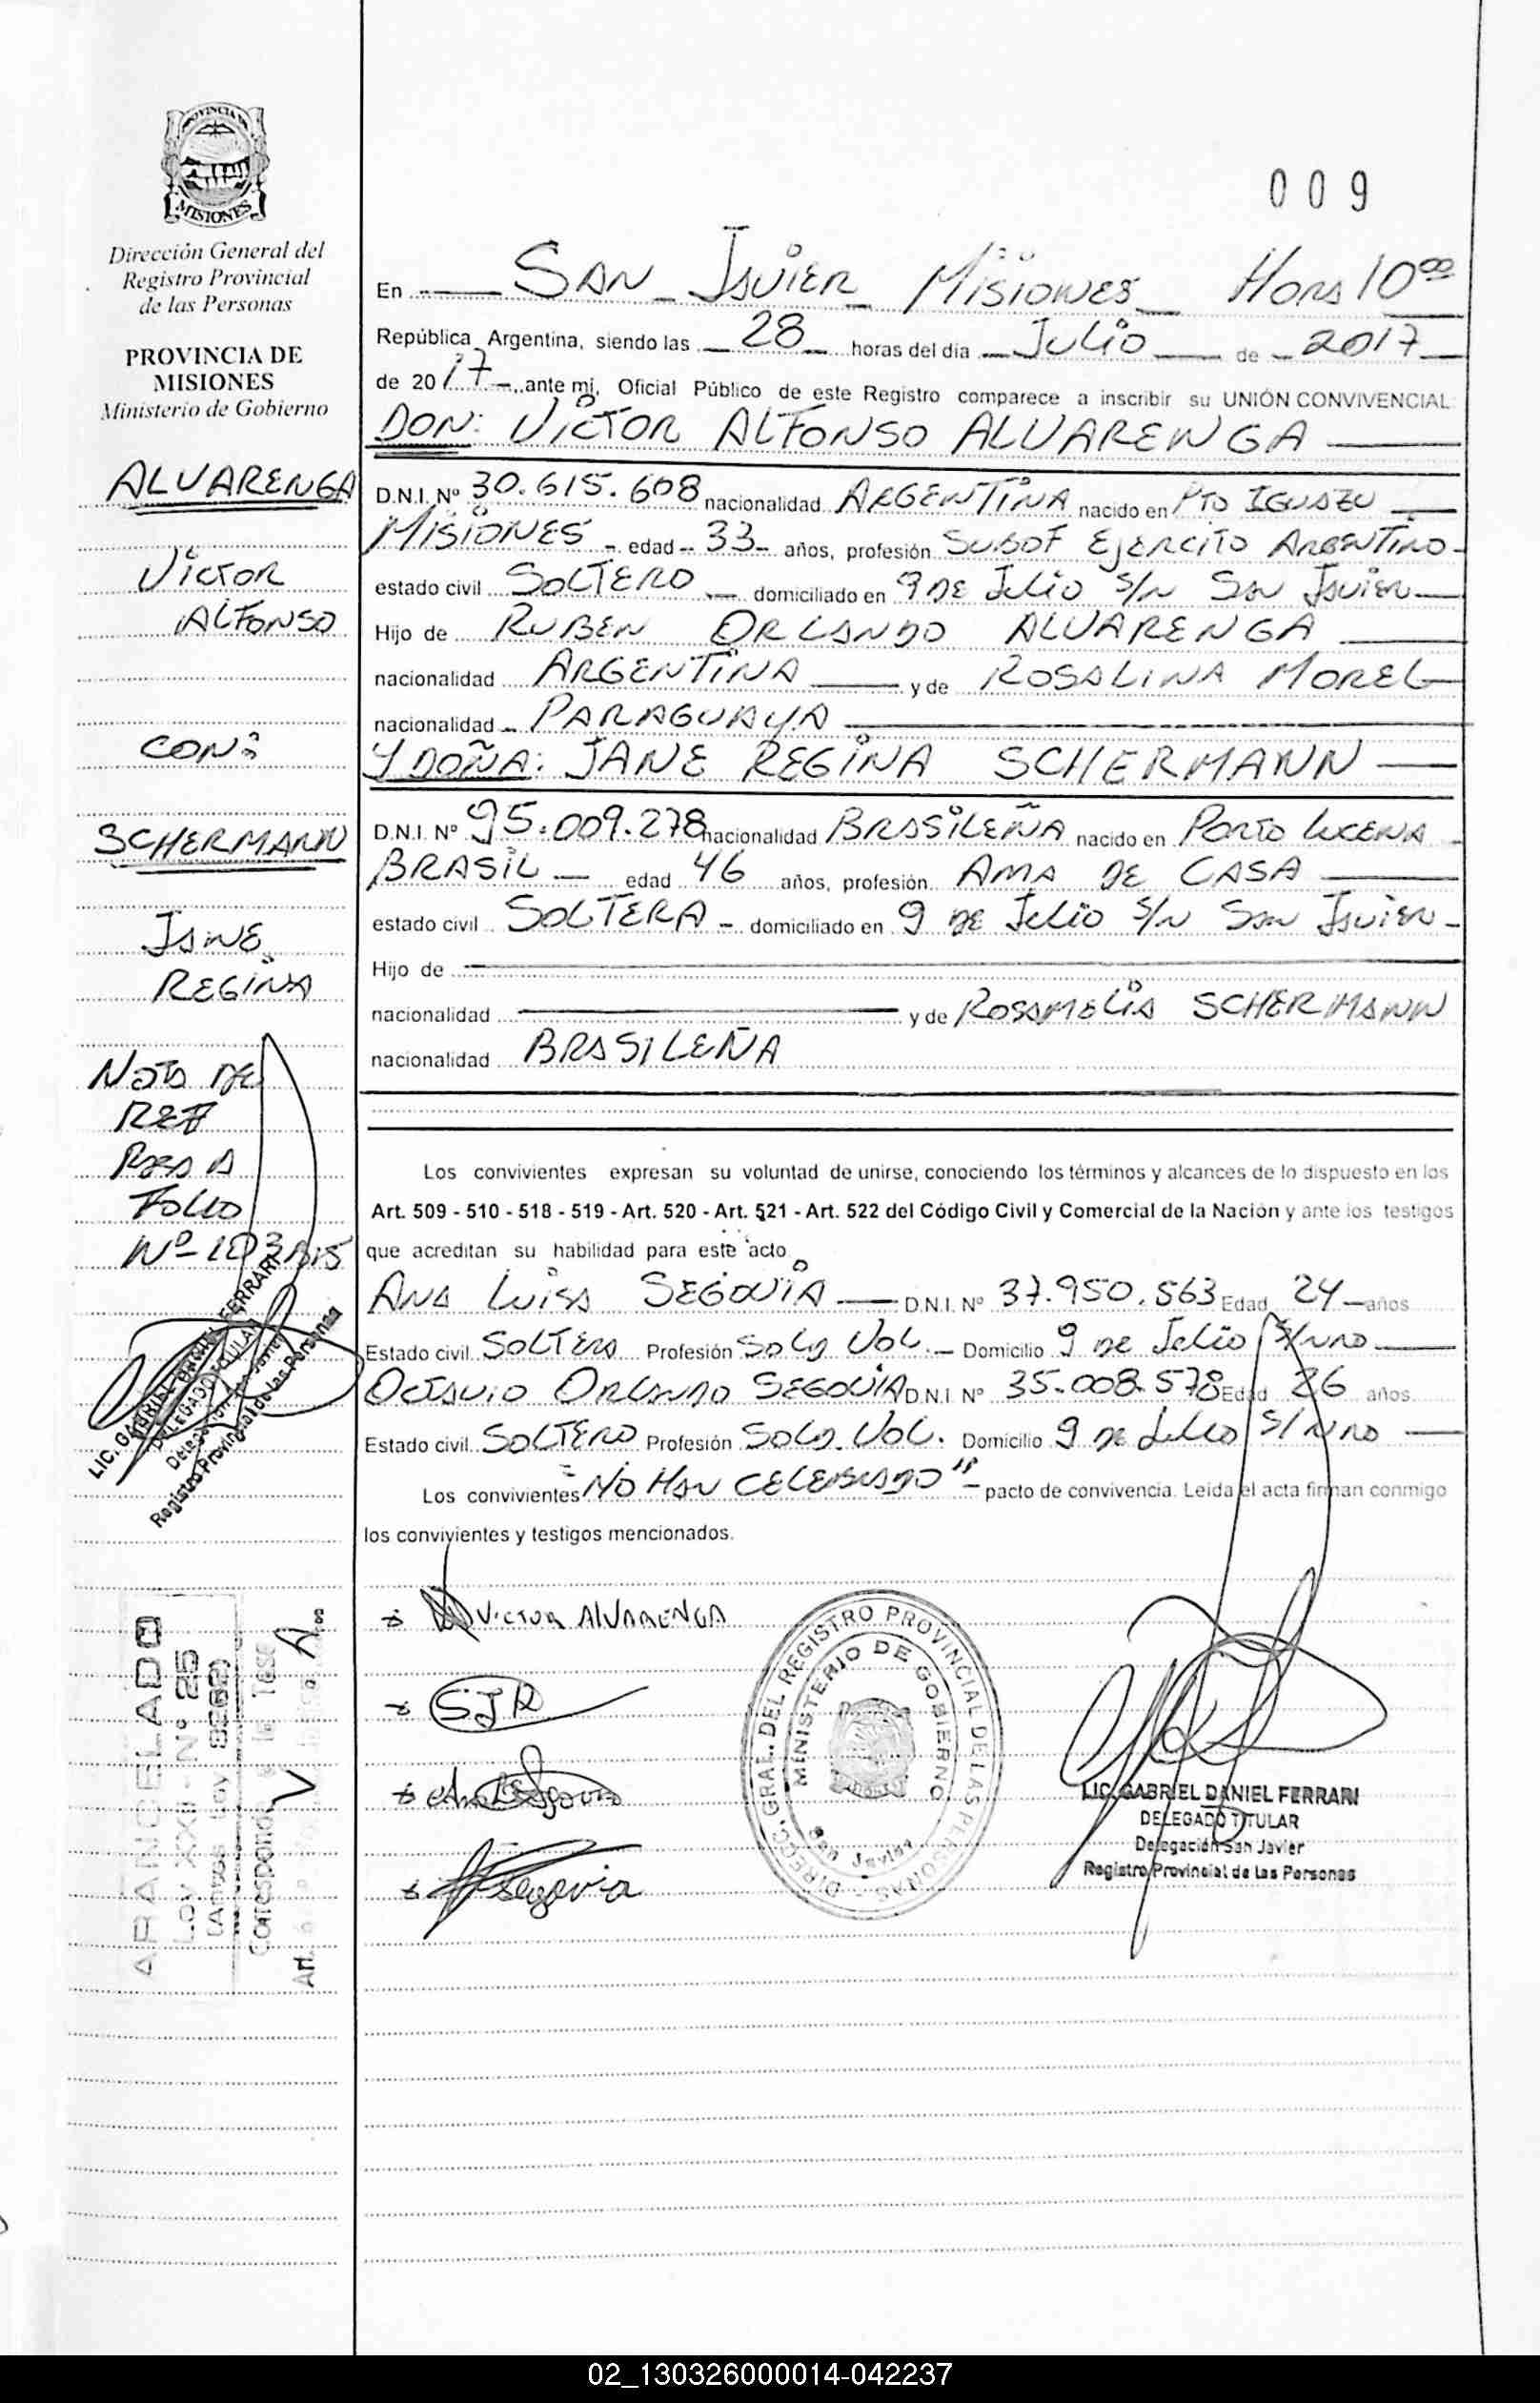 PROVINCIA DE
MISIONES
Dirección General del
Registro Provincial
de las Personas
PROVINCIA DE
MISIONES
Ministerio de Gobierno
ALVARENGA
VICTOR
ALFONSO
CON:
SCHERMANN
JANE
REGINA
NOTA DE
REF
PASA A
FOLIO
Nº 103
LIC. GABRIEL DANIEL FERRARI
DELEGADO TITULAR
Delegación San Javier
Registro Provincial de las Personas
ARANCELADO
Ley XXII - Nº 25
(Antes Ley
Corresponde
Art. V A
009
En SAN JAVIER MISIONES HORA 10⁰⁰
República Argentina, siendo las 28 horas del día JULIO de 2017
de 2017, ante mi, Oficial Público de este Registro comparece a inscribir su UNIÓN CONVIVENCIAL:
DON: VICTOR ALFONSO ALVARENGA
D.N.I. Nº 30.615.608 nacionalidad ARGENTINA nacido en PTO IGUAZU
MISIONES edad 33 años, profesión SUBOF EJERCITO ARGENTINO
estado civil SOLTERO domiciliado en 9 DE JULIO S/N SAN JAVIER
Hijo de RUBEN ORLANDO ALVARENGA
nacionalidad ARGENTINA y de ROSALINA MOREL
nacionalidad PARAGUAYA
Y DOÑA: JANE REGINA SCHERMANN
D.N.I. Nº 95.009.278 nacionalidad BRASILEÑA nacido en PORTO LUCENA
BRASIL edad 46 años, profesión AMA DE CASA
estado civil SOLTERA domiciliado en 9 DE JULIO S/N SAN JAVIER
Hijo de
nacionalidad y de ROSAMELIA SCHERMANN
nacionalidad BRASILEÑA
Los convivientes expresan su voluntad de unirse, conociendo los términos y alcances de lo dispuesto en los
Art. 509 - 510 - 518 - 519 - Art. 520 - Art. 521 - Art. 522 del Código Civil y Comercial de la Nación y ante los testigos
que acreditan su habilidad para este acto
ANA LUISA SEGOVIA D.N.I. Nº 37.950.563 Edad 24 años
Estado civil SOLTERA Profesión SOLD VOL. Domicilio 9 DE JULIO S/NRO
OCTAVIO ORLANDO SEGOVIA D.N.I. Nº 35.008.578 Edad 26 años
Estado civil SOLTERO Profesión SOLD. VOL. Domicilio 9 DE JULIO S/NRO
Los convivientes "NO HAN CELEBRADO" pacto de convivencia. Leida el acta firman conmigo
los convivientes y testigos mencionados.
VICTOR ALVARENGA
SJR
Ana L Segovia
Segovia
DIRECC. GRAL. DEL REGISTRO PROVINCIAL DE LAS PERSONAS
MINISTERIO DE GOBIERNO
San Javier
LIC. GABRIEL DANIEL FERRARI
DELEGADO TITULAR
Delegación San Javier
Registro Provincial de las Personas
02_130326000014-042237